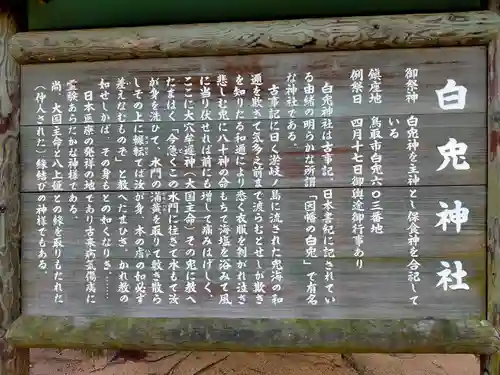 白兎神社
御祭神　白兎神を主神とし保食神を合記して
いる
鎮座地　鳥取市白兎六〇三番地
例祭日　四月十七日御輿途御行事あり
白兎神社は古事記、日本書紀に記されてい
る由緒の明らかな所謂「因幡の白兎」で有名
な神社である。
古事記に曰く淤岐ノ島に流された兎海の和
邇を欺きて気多之前まで渡らむとせしが欺き
を知りたる和邇により悉く衣服を剥がれ泣き
悲しむ兎に八十神の命もちて海塩を浴みて風
に当り伏せしは前にも増して痛みはげしく、
ここに大穴牟遅神（大国主命）その兎に教へ
たまはく「今急くこの水門に往きて水もて汝
が身を洗ひて、水門の蒲黄を取りて敷き散ら
しその上に輾転ては汝が身、本の膚の如必ず
差えなむものぞ」と教へたまひき、かれ教の
如せしかば、その身もとの如くなりき……
日本医療の発祥の地であり古来病気傷痍に
霊験あらたかな神様である。
尚、大国主命と八上姫との縁を取りもたれた
（仲人された）縁結びの神様でもある。